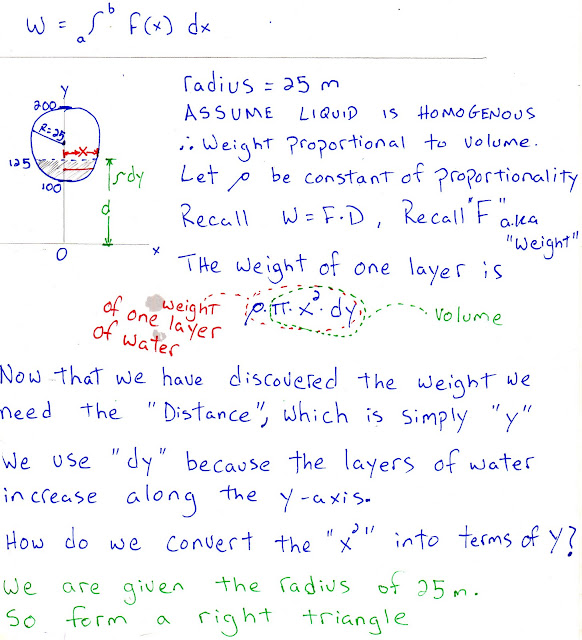 W = ₐ∫ᵇ F(x) dx
radius = 25 m
ASSUME LIQUID IS HOMOGENOUS
∴ Weight proportional to volume.
Let ρ be constant of proportionality
Recall W = F·D, Recall "F" a.k.a
"Weight"
y
200
R=25
x
125
100
dy
d
0
x
The weight of one layer is
of one weight
layer
of water
ρ·π·x²·dy
Volume
Now that we have discovered the weight we
need the "Distance", which is simply "y"
We use "dy" because the layers of water
increase along the y-axis.
How do we convert the "x²" into terms of Y?
We are given the radius of 25 m.
So form a right triangle